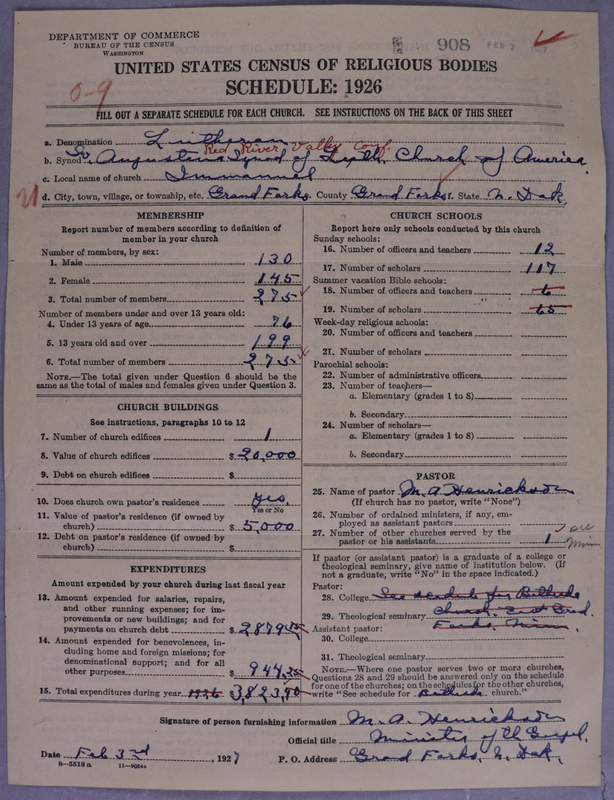 DEPARTMENT OF COMMERCE
BUREAU OF THE CENSUS
WASHINGTON
908 FEB 7
UNITED STATES CENSUS OF RELIGIOUS BODIES
SCHEDULE: 1926
0-9
FILL OUT A SEPARATE SCHEDULE FOR EACH CHURCH. SEE INSTRUCTIONS ON THE BACK OF THIS SHEET
a. Denomination Lutheran
Red River Valley Conf.
b. Synod Augustana Synod of Luth. Church of America
c. Local name of church Immanuel
d. City, town, village, or township, etc. Grand Forks County Grand Forks State N. Dak.
MEMBERSHIP
Report number of members according to definition of
member in your church
Number of members, by sex:
1. Male 130
2. Female 145
3. Total number of members 275
Number of members under and over 13 years old:
4. Under 13 years of age 76
5. 13 years old and over 199
6. Total number of members 275
NOTE.—The total given under Question 6 should be the
same as the total of males and females given under Question 3.
CHURCH BUILDINGS
See instructions, paragraphs 10 to 12
7. Number of church edifices 1
8. Value of church edifices $20,000
9. Debt on church edifices $
10. Does church own pastor's residence? yes
Yes or No
11. Value of pastor's residence (if owned by
church) $5,000
12. Debt on pastor's residence (if owned by
church) $
EXPENDITURES
Amount expended by your church during last fiscal year
13. Amount expended for salaries, repairs,
and other running expenses; for im-
provements or new buildings; and for
payments on church debt $2879.
14. Amount expended for benevolences, in-
cluding home and foreign missions; for
denominational support; and for all
other purposes $944.
15. Total expenditures during year 1926 3,823.
CHURCH SCHOOLS
Report here only schools conducted by this church
Sunday schools:
16. Number of officers and teachers 12
17. Number of scholars 117
Summer vacation Bible schools:
18. Number of officers and teachers 6
19. Number of scholars 65
Week-day religious schools:
20. Number of officers and teachers
21. Number of scholars
Parochial schools:
22. Number of administrative officers
23. Number of teachers—
a. Elementary (grades 1 to 8)
b. Secondary
24. Number of scholars—
a. Elementary (grades 1 to 8)
b. Secondary
PASTOR
25. Name of pastor M. A. Henrickson
(If church has no pastor, write "None")
26. Number of ordained ministers, if any, em-
ployed as assistant pastors
27. Number of other churches served by the
pastor or his assistants 1
If pastor (or assistant pastor) is a graduate of a college or
theological seminary, give name of institution below. (If
not a graduate, write "No" in the space indicated.)
Pastor:
28. College See schedule for Bethesda
29. Theological seminary church, East Grand
Assistant pastor: Forks, Minn.
30. College
31. Theological seminary
NOTE.—Where one pastor serves two or more churches,
Questions 28 and 29 should be answered only on the schedule
for one of the churches; on the schedules for the other churches,
write "See schedule for Bethesda church."
Signature of person furnishing information M. A. Henrickson
Official title Minister of the Gospel.
Date Feb 3rd, 1927 P. O. Address Grand Forks, N. Dak.
8—5518a 11—9054a